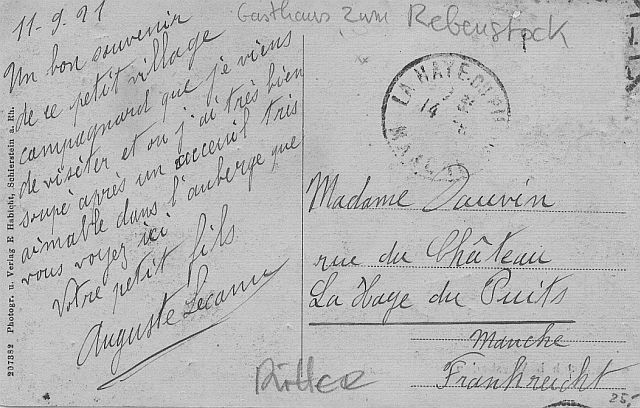 11-9.21
Un bon souvenir
de ce petit village
campagnard que je viens
de visiter et ou j'ai très bien
soupé après un acceuil très
aimable dans l'auberge que
vous voyez ici
Votre petit fils
Auguste Lecanu
Gasthaus zum Rebenstock
LA HAYE-DU-PUITS
14
Madame Dauvin
rue du Château
La Haye du Puits
Manche
Frankreich
Ritter
25,
207382 Photogr. u. Verlag E Habicht, Schierstein a. Rh.